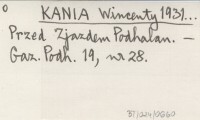 o KANIA Wincenty 1931...
Przed Zjazdem Podhalan. –
Gaz. Podh. 19, nr 28.